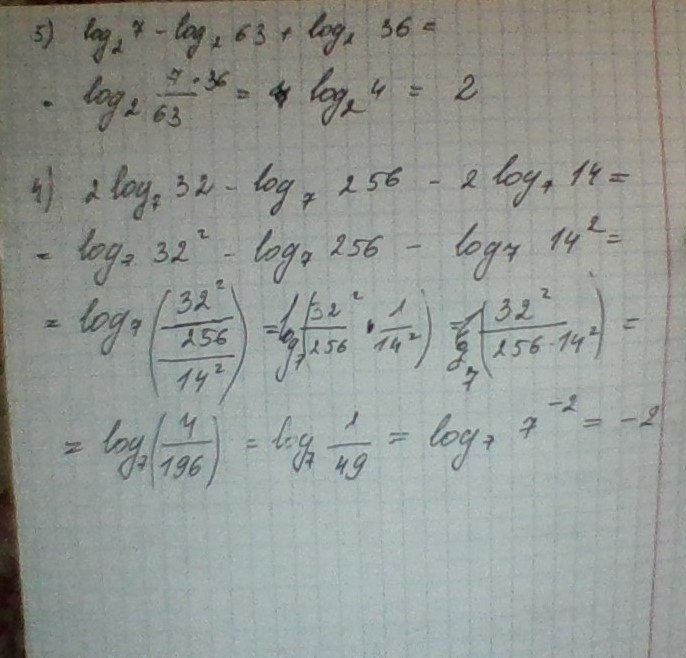 5) log₂ 7 - log₂ 63 + log₂ 36 =
log₂ 7·36/63 = log₂ 4 = 2
4) 2 log₇ 32 - log₇ 256 - 2 log₇ 14 =
= log₇ 32² - log₇ 256 - log₇ 14² =
= log₇ (32²/256/14²) = log₇ (32²/256 · 1/14²) = log₇ (32²/256·14²) =
= log₇ (4/196) = log₇ 1/49 = log₇ 7⁻² = -2